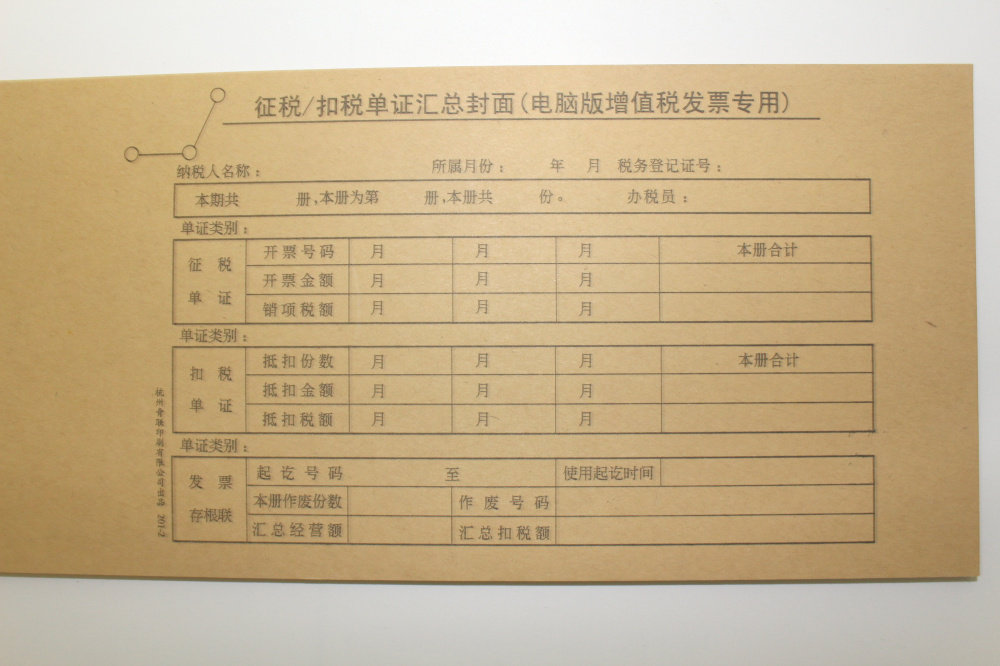 征税/扣税单证汇总封面(电脑版增值税发票专用)
纳税人名称： 所属月份： 年 月 税务登记证号：
本期共 册,本册为第 册,本册共 份。 办税员：
单证类别：
征税单证 开票号码 月 月 月 本册合计
开票金额 月 月 月
销项税额 月 月 月
单证类别：
扣税单证 抵扣份数 月 月 月 本册合计
抵扣金额 月 月 月
抵扣税额 月 月 月
单证类别：
发票存根联 起讫号码 至 使用起讫时间
本册作废份数 作废号码
汇总经营额 汇总扣税额
杭州 联印刷有限公司出品 201-2